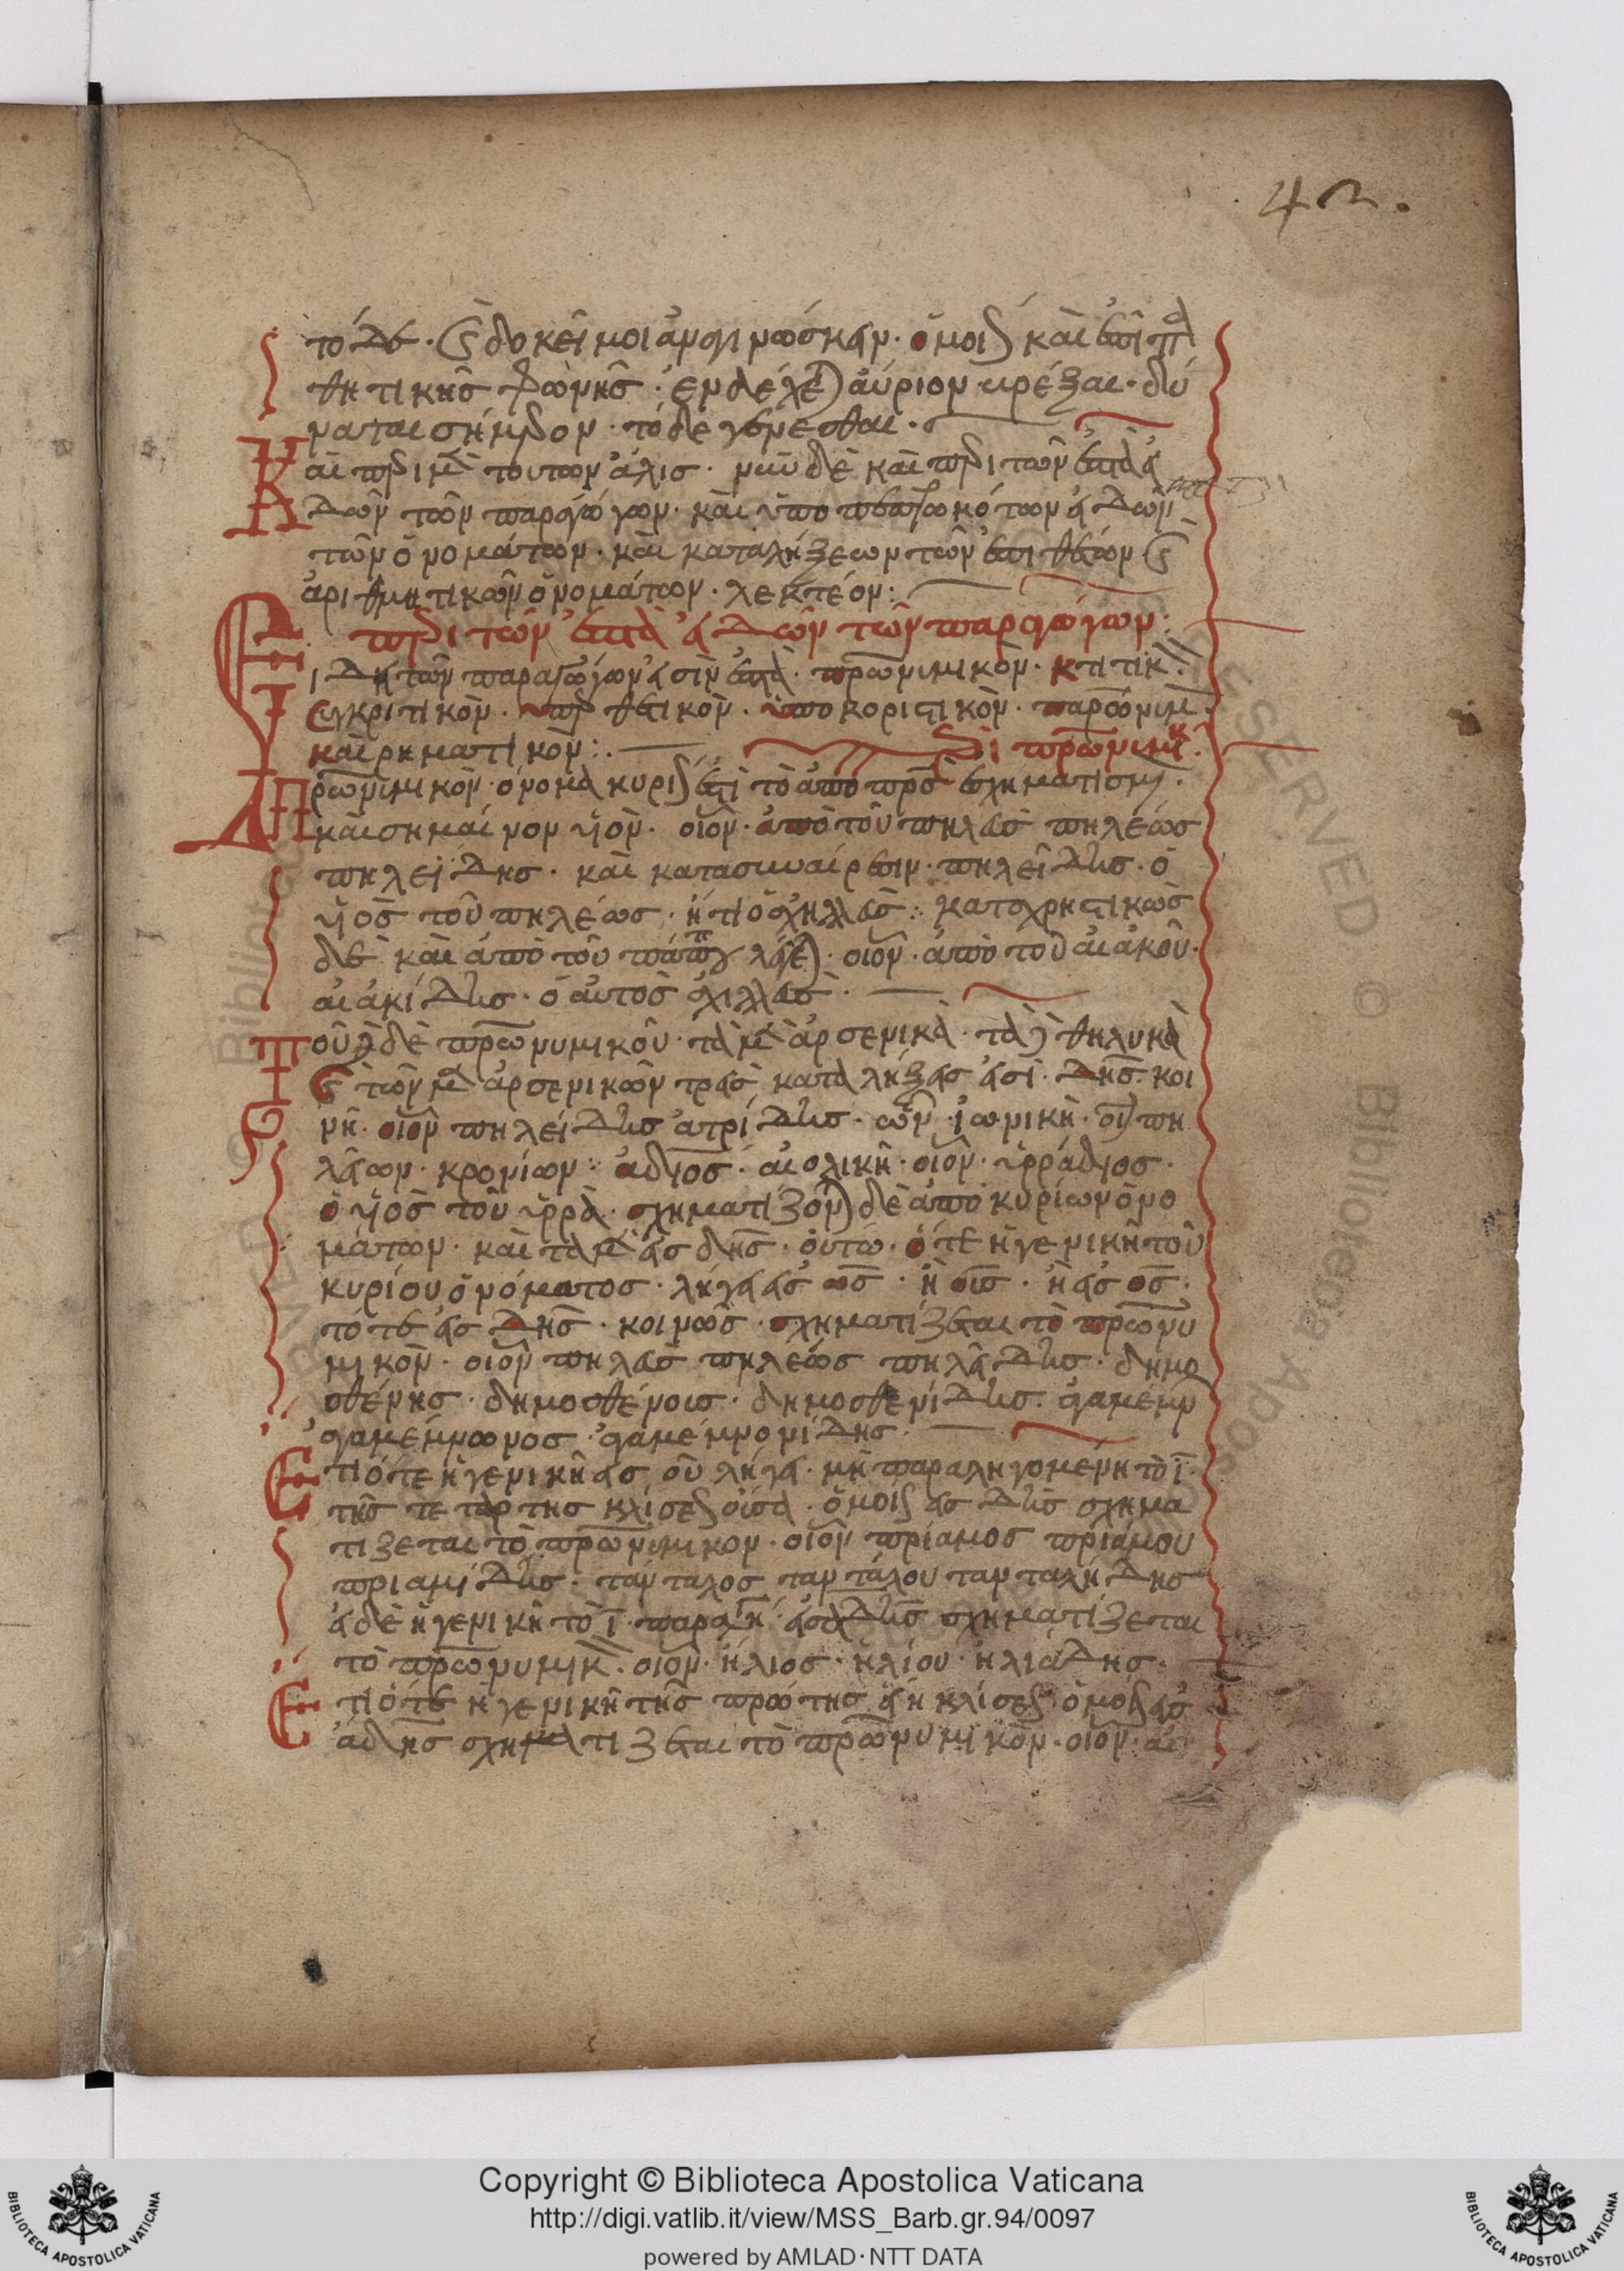 42.
τόδε · καὶ δοκεῖ μοι ἀναγινώσκειν · ὅμοιον καὶ ἐπὶ πα
θητικῆς φωνῆς · ἐνδέχεται αὔριον τρέξαι · δύ
ναται σήμερον · τόδε γενέσθαι ·
Καὶ περὶ μὲν τούτων ἅλις · νῦν δὲ καὶ περὶ τῶν ἑπτὰ εἰ
δῶν τῶν παραγώγων · καὶ ὑποπεπτωκότων εἰδῶν
τῶν ὀνομάτων · καὶ καταλήξεων τῶν ἐπιθέτων καὶ
ἀριθμητικῶν ὀνομάτων · λεκτέον :
περὶ τῶν ἑπτὰ εἰδῶν τῶν παραγώγων :
Εἴδη τῶν παραγώγων εἰσὶν ἑπτὰ · πρωνυμικὸν · κτιτικὸν ·
συγκριτικὸν · ὑπερθετικὸν · ὑποκοριστικὸν · παρώνυμον ·
καὶ ρηματικὸν :
πρωνυμικὸν · ὄνομα κυρίως ἐστὶ τὸ ἀπὸ πρς ἐσχηματισμένον ·
καὶ σημαῖνον υἱὸν · οἷον · ἀπὸ τοῦ πηλεὺς πηλέως
πηλεΐδης · καὶ κατὰ συναίρεσιν · πηλείδης · ὁ
υἱὸς τοῦ πηλέως · ἤτι ὁ ἀχιλλεὺς : καταχρηστικῶς
δὲ καὶ ἀπὸ τοῦ πάππου λέγεται · οἷον · ἀπὸ τοῦ αἰακοῦ ·
αἰακίδης · ὁ αὐτὸς ἀχιλλεὺς ·
Τοῦ δὲ πρωνυμικοῦ · τὰ μὲν ἀρσενικὰ · τὰ δὲ θηλυκὰ
καὶ τῶν μὲν ἀρσενικῶν τρεῖς καταλήξεις εἰσὶ · δης · κοι
νὴ · οἷον πηλείδης ἀτρείδης · ων · ἰωνικὴ · οἷον πη
λείων · κρονίων : άδιος · αἰολικὴ · οἷον · ὑρράδιος ·
ὁ υἱὸς τοῦ ὕρρα · σχηματίζονται δὲ ἀπὸ κυρίων ὀνο
μάτων · καὶ τὰ μὲν εἰς δης · οὕτω · ὅτε ἡ γενικὴ τοῦ
κυρίου ὀνόματος · λήγει εἰς ως · ἢ οις · ἢ εἰς ος ·
τότε εἰς δης · κοινῶς · σχηματίζεται τὸ πρωνυ
μικὸν · οἷον πηλεὺς πηλέως πηλείδης · δημο
σθένης · δημοσθένοις · δημοσθενίδης · ἀγαμέμν
ἀγαμέμνωνος · ἀγαμεμνονίδης ·
Ἔτι ὅτε ἡ γενικὴ εἰς ου λήγει · μὴ παραληγομένη τὸ ϊ ·
τῆς τετάρτης κλίσεως οὖσα · ὁμοίως εἰς δης σχημα
τίζεται τὸ πρωνυμικον · οἷον πρίαμος πριάμου
πριαμίδης · τάνταλος ταντάλου τανταλήδης
εἰ δὲ ἡ γενικὴ τὸ ϊ · παραλήγει · εἰς άδης σχηματίζεται
τὸ πρωνυμικὸν · οἷον · ἥλιος · ἡλίου · ἡλιάδης ·
Ἔτι ὅτε ἡ γενικὴ τῆς πρώτης εἴη κλίσεως ὁμοίως εἰς
άδης σχηματίζεται τὸ πρωνυμικὸν · οἷον · αἰ
Copyright © Biblioteca Apostolica Vaticana
http://digi.vatlib.it/view/MSS_Barb.gr.94/0097
powered by AMLAD · NTT DATA
BIBLIOTECA APOSTOLICA VATICANA
BIBLIOTECA APOSTOLICA VATICANA